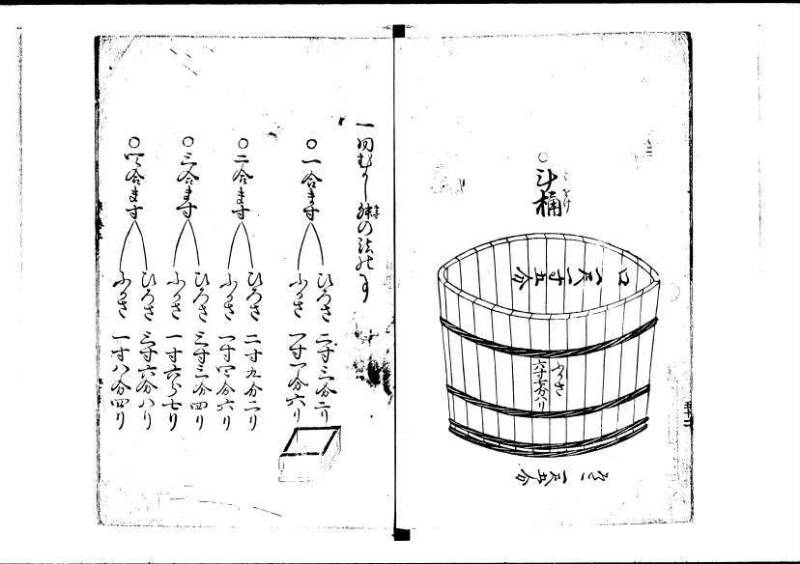 ○斗桶
口 一尺一寸五分
ふかさ
六寸七分八リ
そこ 一尺五分
むかし桝の法の事
○一合ます
ひろさ 二寸三分二リ
ふかさ 一寸一分六リ
○二合ます
ひろさ 二寸九分二リ
ふかさ 一寸四分六リ
○三合ます
ひろさ 三寸三分四リ
ふかさ 一寸六分七リ
○四合ます
ひろさ 三寸六分八リ
ふかさ 一寸八分四リ